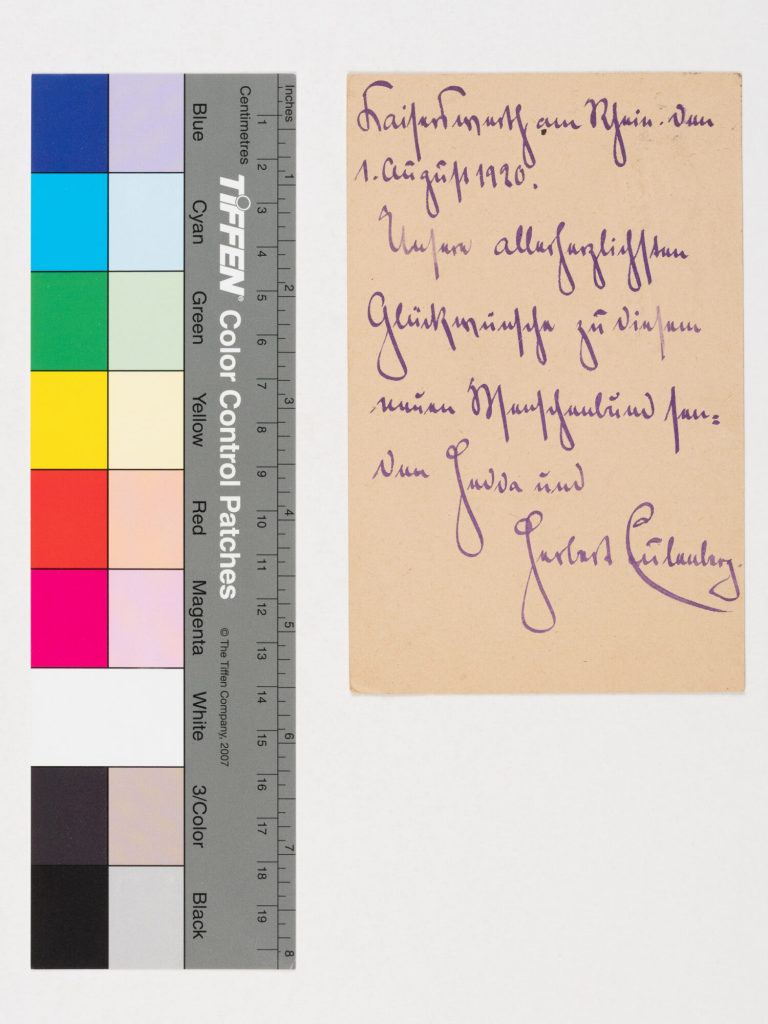 Blue
Cyan
Green
Yellow
Red
Magenta
White
3/Color
Black
Centimetres
Inches
TIFFEN® Color Control Patches
© The Tiffen Company, 2007
1 2 3 4 5 6 7 8 9 10 11 12 13 14 15 16 17 18 19
1 2 3 4 5 6 7 8
Kaiserswerth am Rhein. den
1. August 1920.
Unsere allerherzlichsten
Glückwünsche zu diesem
neuen Menschenbund sen=
den Hedda und
Herbert Eulenberg.